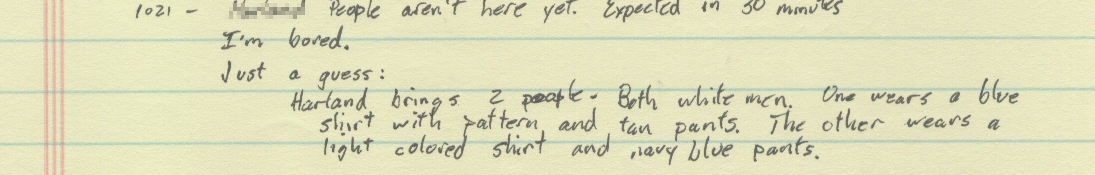 1021 - People aren't here yet. Expected in 30 minutes
I'm bored.
Just a guess:
Harland brings 2 people. Both white men. One wears a blue
shirt with pattern and tan pants. The other wears a
light colored shirt and navy blue pants.